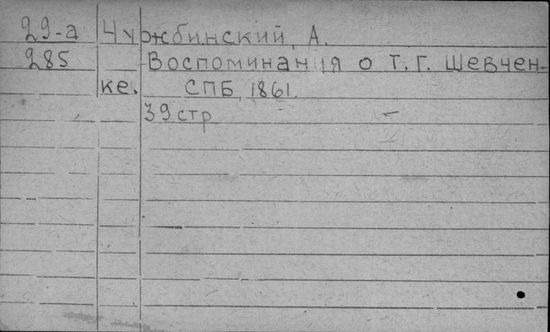 29-а Чужбинский, А.
285 Воспоминания о Т. Г. Шевчен-
ке. СПБ, 1861.
39 стр